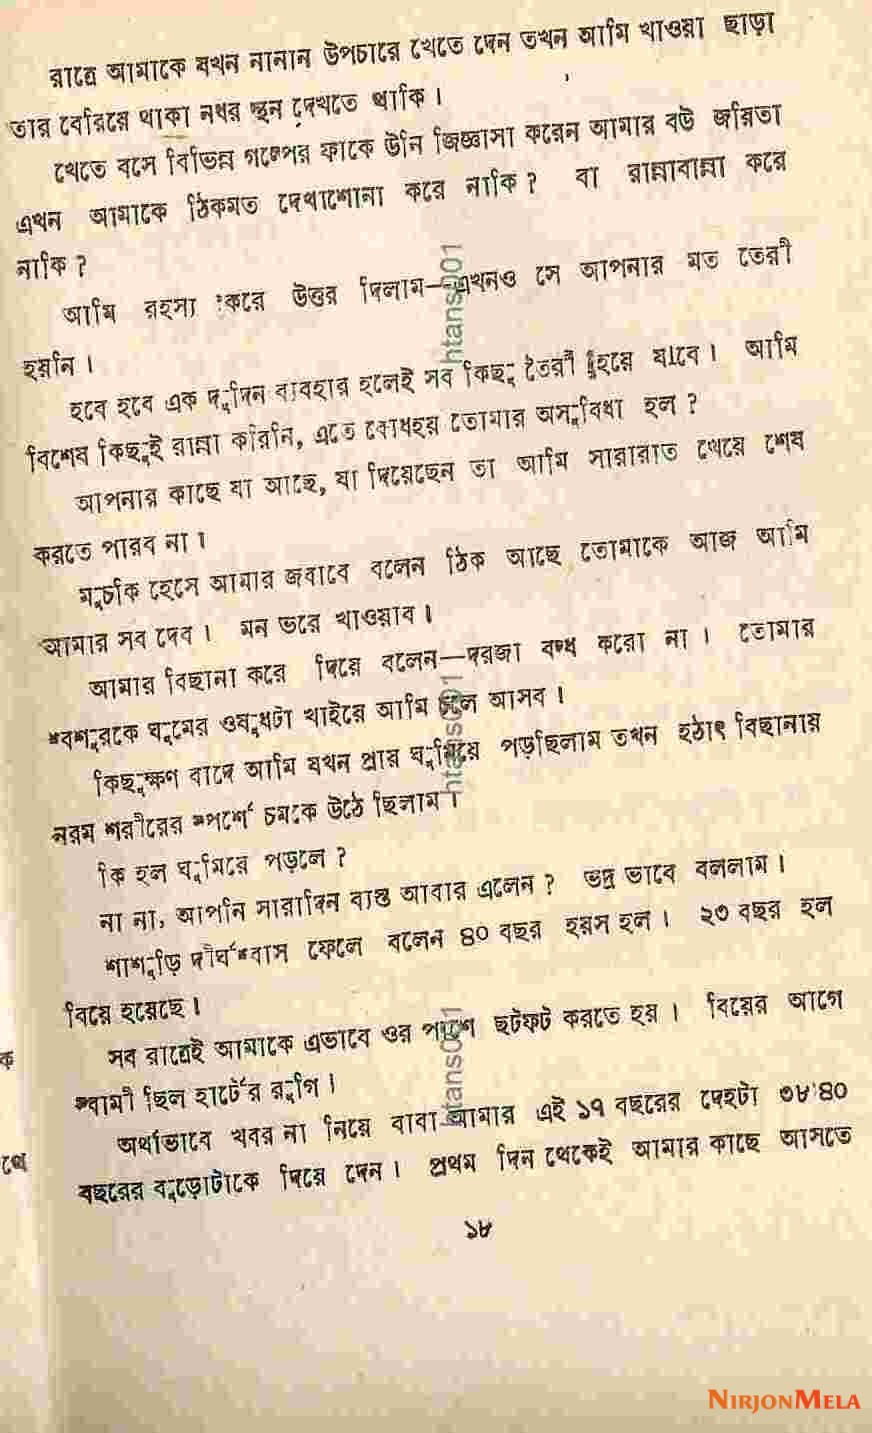 রাত্রে আমাকে যখন নানান উপচারে খেতে দেন তখন আমি খাওয়া ছাড়া
তার বেরিয়ে থাকা নধর স্থন দেখতে থাকি।
খেতে বসে বিভিন্ন গল্পের ফাকে উনি জিজ্ঞাসা করেন আমার বউ জয়িতা
এখন আমাকে ঠিকমত দেখাশোনা করে নাকি? বা রান্নাবান্না করে
নাকি?
আমি রহস্য করে উত্তর দিলাম—এখনও সে আপনার মত তৈরী
হয়নি।
হবে হবে এক দুদিন ব্যবহার হলেই সব কিছু তৈরী হয়ে যাবে। আমি
বিশেষ কিছুই রান্না করিনি, এতে বোধহয় তোমার অসুবিধা হল?
আপনার কাছে যা আছে, যা দিয়েছেন তা আমি সারারাত খেয়ে শেষ
করতে পারব না।
মুচকি হেসে আমার জবাবে বলেন ঠিক আছে তোমাকে আজ আমি
আমার সব দেব। মন ভরে খাওয়াব।
আমার বিছানা করে দিয়ে বলেন—দরজা বন্ধ করো না। তোমার
শ্বশুরকে ঘুমের ওষুধটা খাইয়ে আমি চলে আসব।
কিছুক্ষণ বাদে আমি যখন প্রায় ঘুমিয়ে পড়ছিলাম তখন হঠাৎ বিছানায়
নরম শরীরের স্পর্শে চমকে উঠে ছিলাম।
কি হল ঘুমিরে পড়লে?
না না, আপনি সারাদিন ব্যস্ত আবার এলেন? ভদ্র ভাবে বললাম।
শাশুড়ি দীর্ঘশ্বাস ফেলে বলেন ৪০ বছর হয়স হল। ২৩ বছর হল
বিয়ে হয়েছে।
সব রাত্রেই আমাকে এভাবে ওর পাশে ছটফট করতে হয়। বিয়ের আগে
স্বামী ছিল হার্টের রুগি।
অর্থাভাবে খবর না নিয়ে বাবা আমার এই ১৭ বছরের দেহটা ৩৮/৪০
বছরের বুড়োটাকে দিয়ে দেন। প্রথম দিন থেকেই আমার কাছে আসতে
১৮
ক
থে
htans001
htans001
htans001
NIRJONMELA